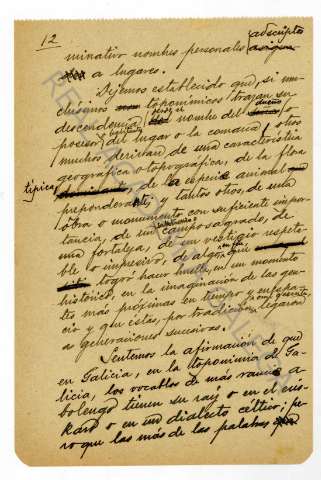 12
minativo nombres personales adscriptos
a lugares.
Dejemos establecido que, si mu-
chísimos toponímicos trazan su
descendencia por el nombre del dueño o
posesor del lugar o la comarca, otros
muchos derivan de una característica
geográfica o topográfica, de la flora
típica, de la especie animal
preponderante, tantas otras, de una
obra o monumento con suficiente impor-
tancia, de un campo sagrado, de
una fortaleza, de un vestigio respeta-
ble o impresivo, de algo, en fin, que
logró hacer huella, en un momento
histórico, en la imaginación de las gen-
tes más próximas en tiempo y espa-
cio y que éstas, por tradición, legaron
a generaciones sucesivas.
Sentemos la afirmación de que
en Galicia, en la toponimia de Ga-
licia, los vocablos de más rancio a-
bolengo tienen su raíz o en el éus-
karo o en un dialecto céltico; pe-
ro que las más de las palabras